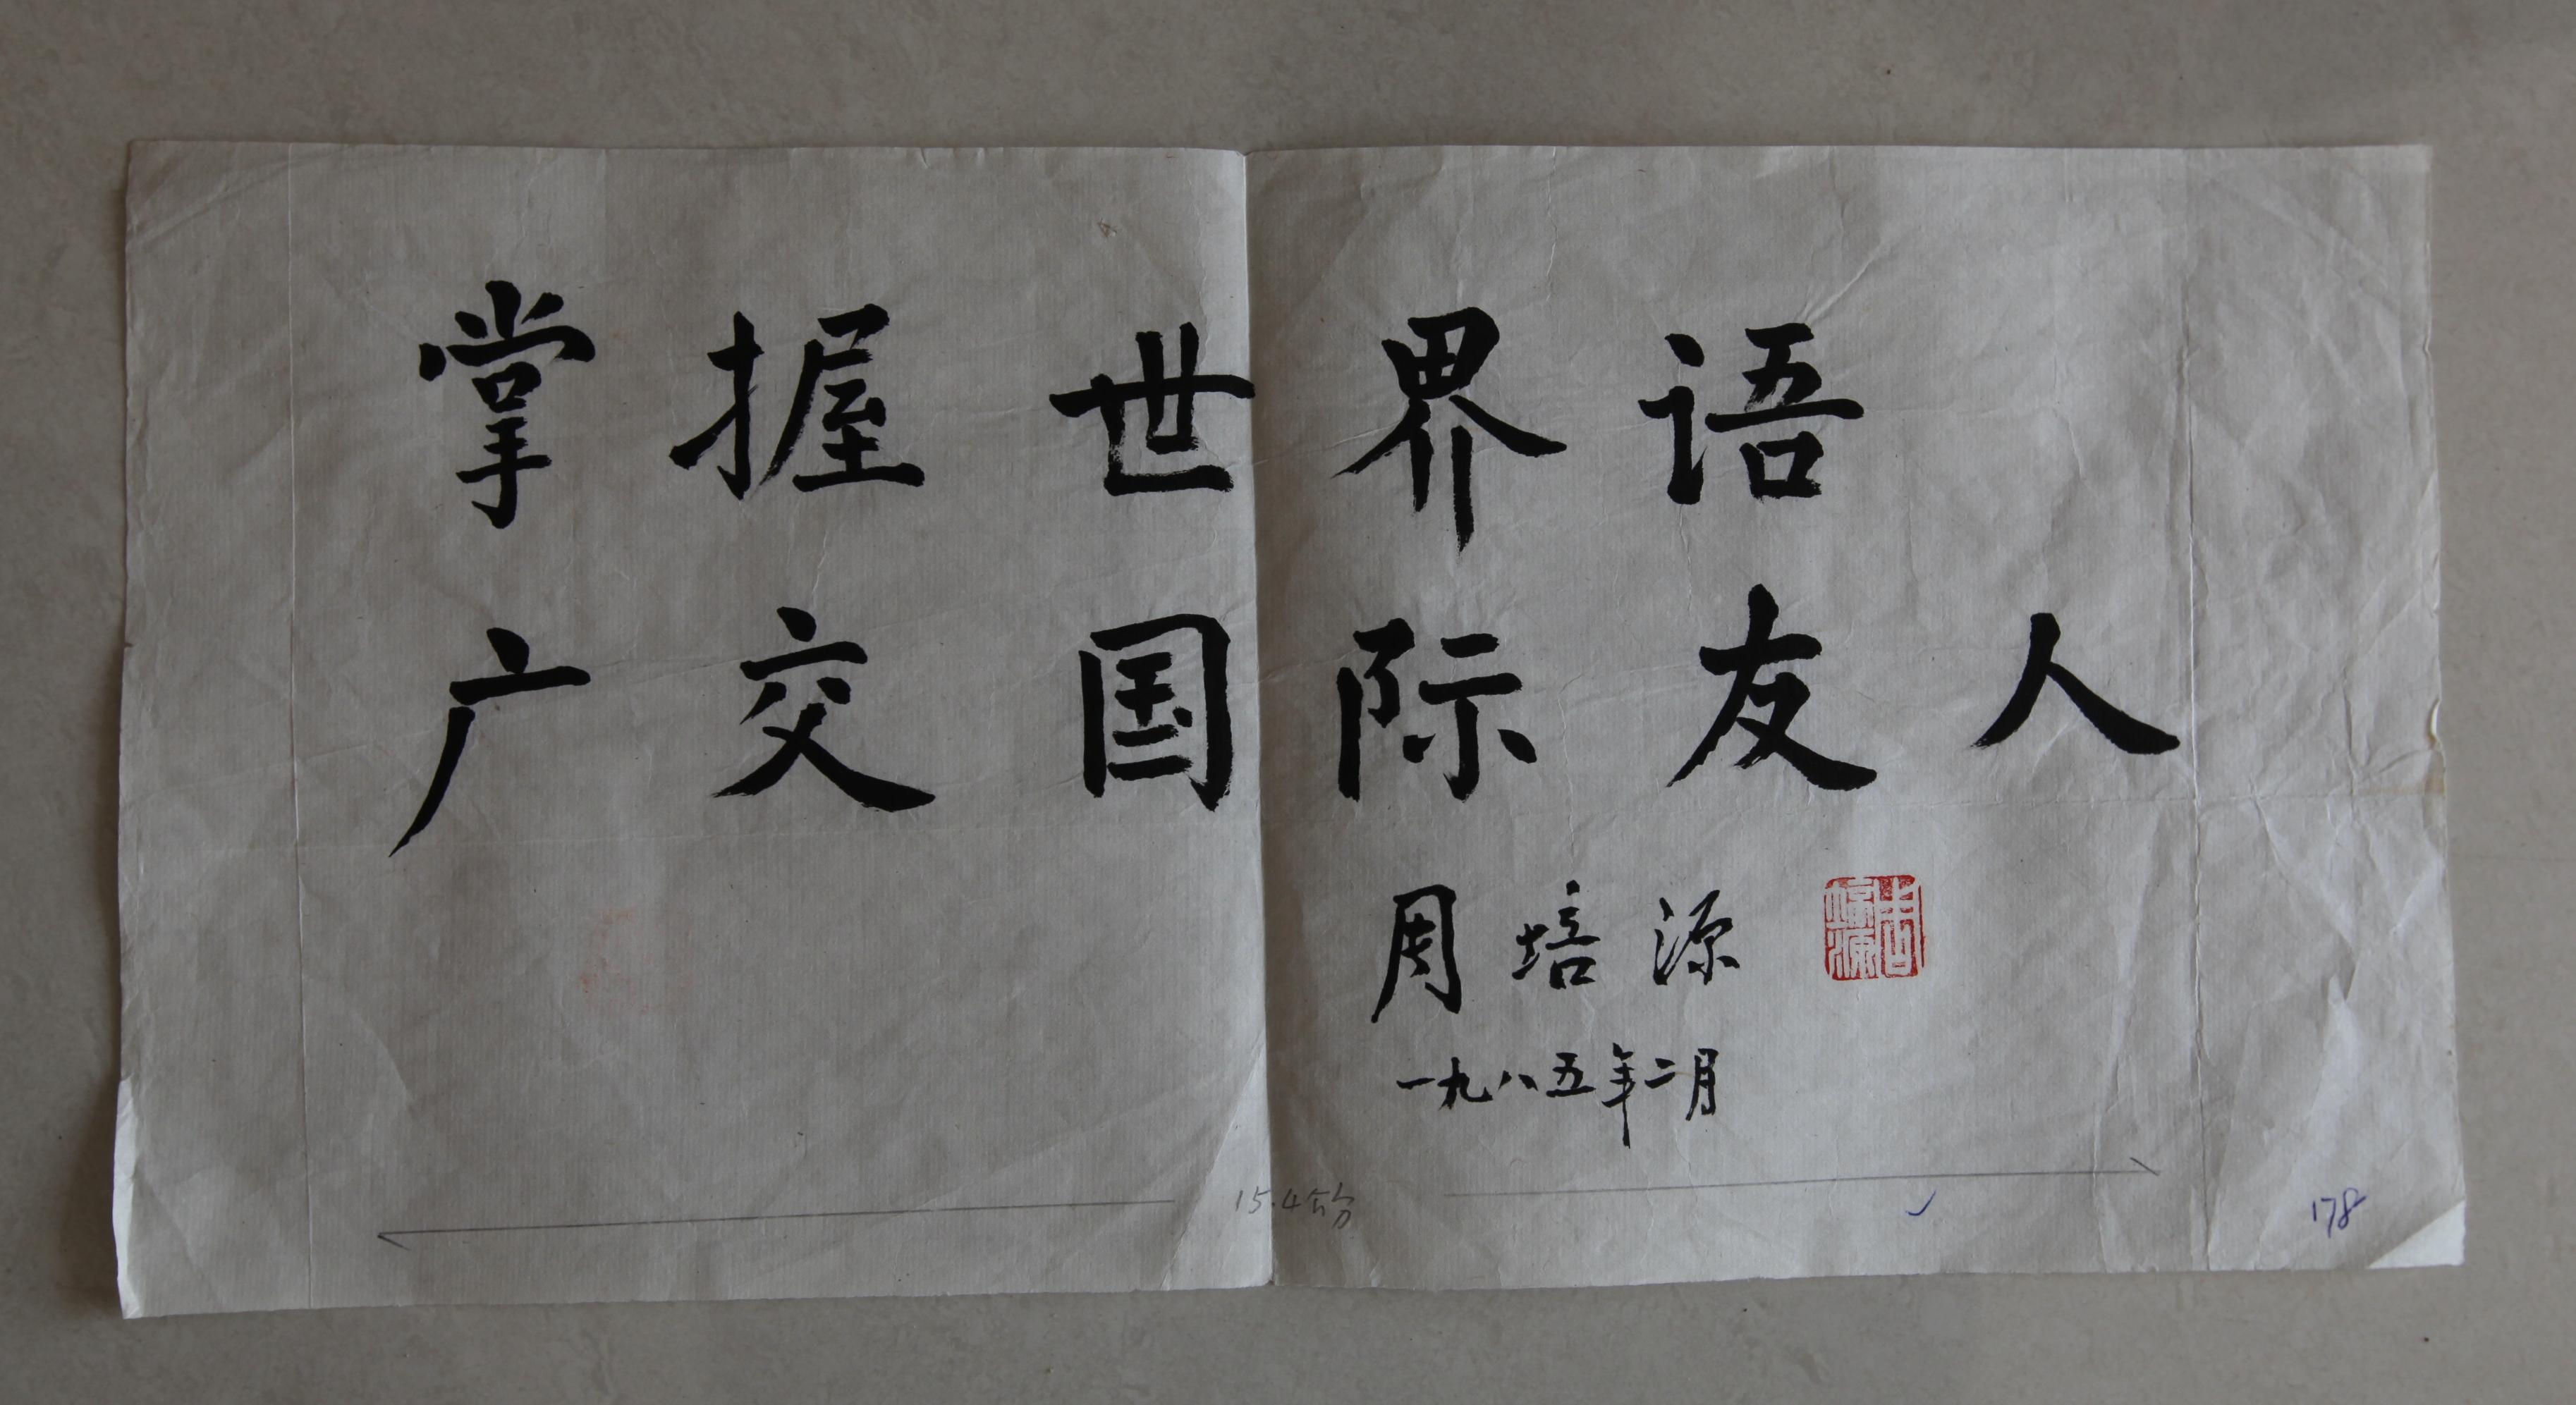 掌握世界语
广交国际友人
周培源
周培源
一九八五年二月
15.4公分
178